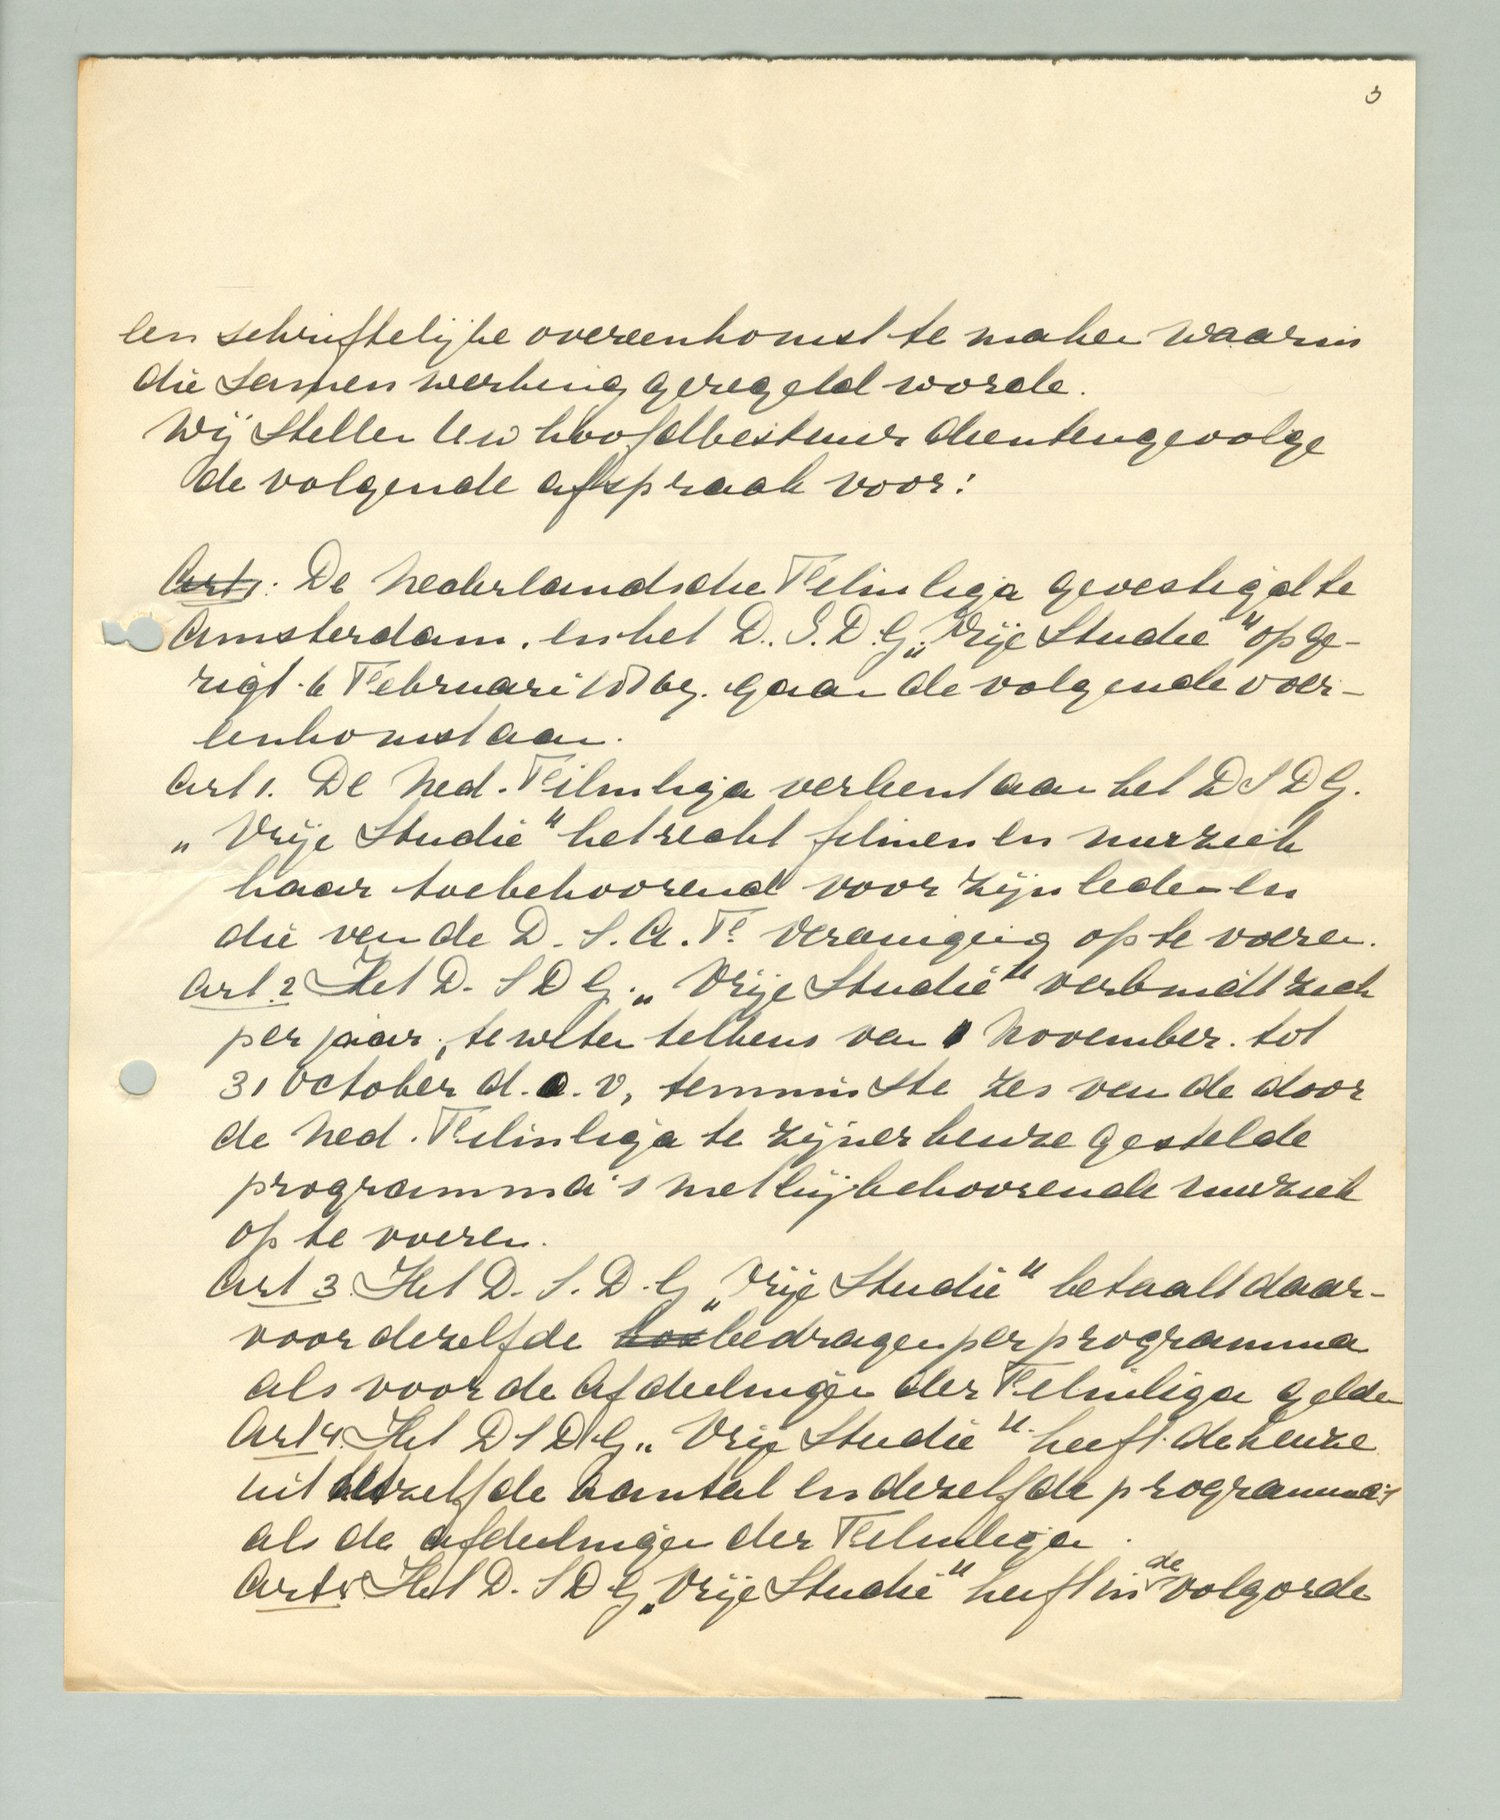 3
een schriftelijke overeenkomst te maken waarin
die samenwerking geregeld worde.
Wij stellen Uw hoofdbestuur dientengevolge
de volgende afspraak voor:
Art 1. De Nederlandsche Filmliga gevestigd te
Amsterdam, en het D.S.D.G. „Vrije Studie" opge-
rigt 6 Februari gaan de volgende over-
eenkomst aan.
Art 1. De Ned. Filmliga verleent aan het D S D G.
„Vrije Studie" het recht filmen en muziek
haar toebehoorend voor zijn leden en
die van de D.S.A.F. Vereeniging op te voeren.
Art 2 Het D. S D G. „Vrije Studie" verbindt zich
per jaar, te weten telkens van 1 November tot
31 October d.o.v, tenminste zes van de door
de Ned. Filmliga te zijner keuze gestelde
programma's met bijbehoorende muziek
op te voeren.
Art 3 Het D. S. D. G „Vrije Studie" betaalt daar-
voor dezelfde bedragen per programma
als voor de afdeelingen der Filmliga gelden
Art 4. Het D S D G „Vrije Studie" heeft de keuze
uit hetzelfde aantal en dezelfde programma's
als de afdeelingen der Filmliga.
Art 5 Het D. S D G „Vrije Studie" heeft in de volgorde